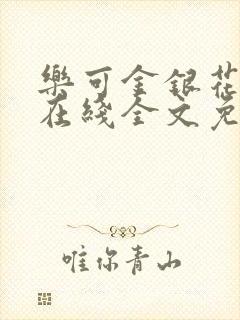 樂可金銀花
在綫全文免
唯你青山